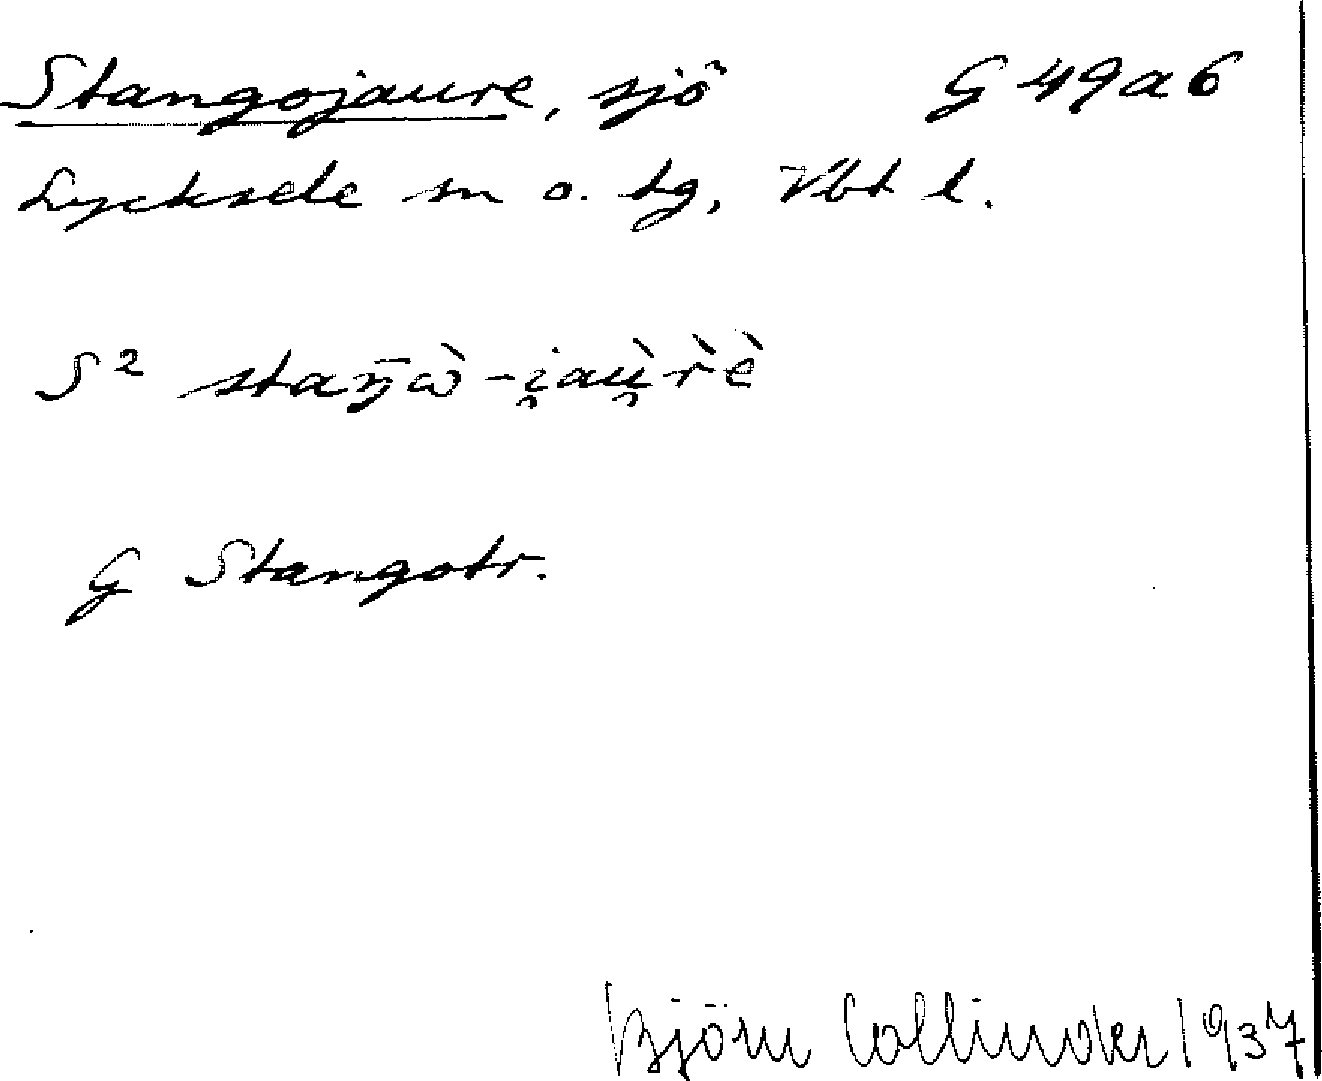 Stangojaure, sjö G 49a6
Lycksele sn o. tg, Vbt l.
S² staŋ̄ɷ̀-i̯aù̯r̀è
G Stangotr.
Björn Collinder 1937